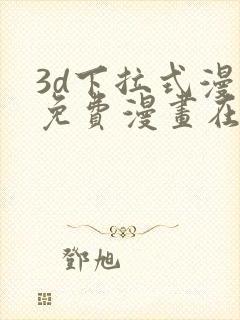 3d下拉式漫
免費漫畫在
鄧旭